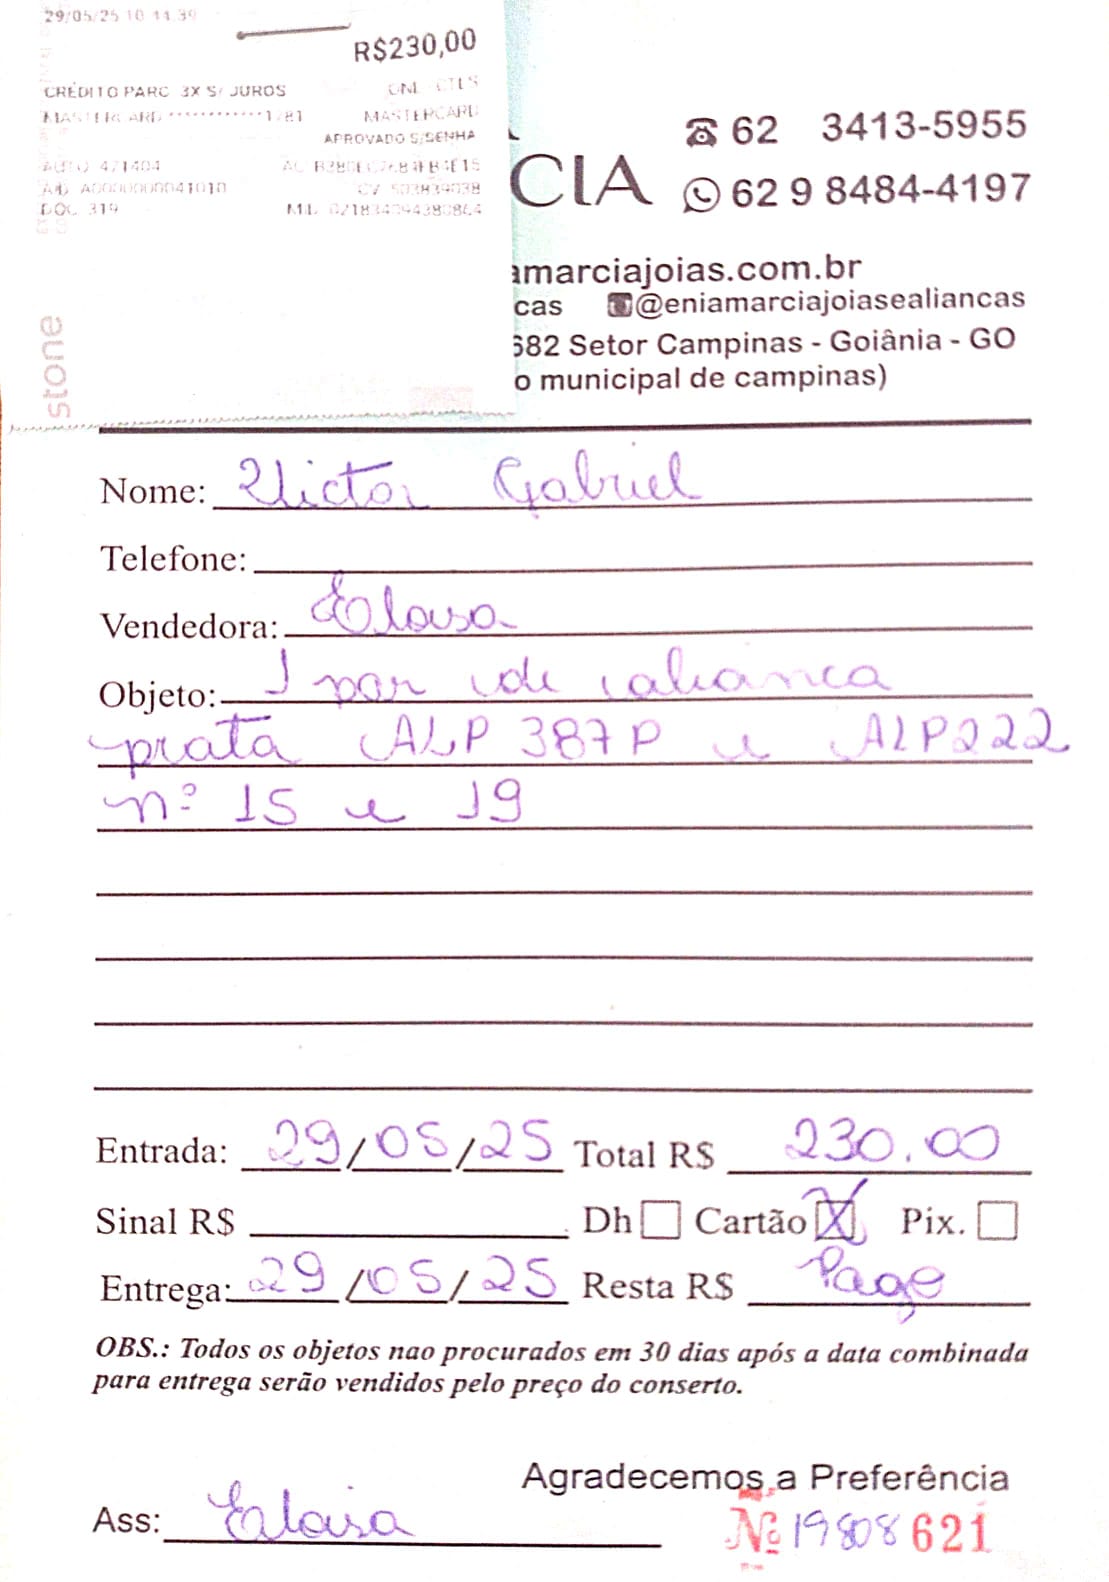 29/05/25 10:11:39
R$230,00
CRÉDITO PARC 3X S/ JUROS
MASTERCARD ************1281 MASTERCARD
APROVADO S/SENHA
AUTO 471404
AID A0000000041010 CV 503839038
DOC 319
stone
CIA
62 3413-5955
62 9 8484-4197
amarciajoias.com.br
cas @eniamarciajoiasealiancas
682 Setor Campinas - Goiânia - GO
o municipal de campinas)
Nome: Victor Gabriel
Telefone:
Vendedora: Eloisa
Objeto: 1 par de alianca
prata ALP 387P e ALP222
nº 15 e 19
Entrada: 29/05/25 Total R$ 230.00
Sinal R$ Dh Cartão X Pix.
Entrega: 29/05/25 Resta R$ Pago
OBS.: Todos os objetos nao procurados em 30 dias após a data combinada
para entrega serão vendidos pelo preço do conserto.
Agradecemos a Preferência
Ass: Eloisa
Nº 19808 621